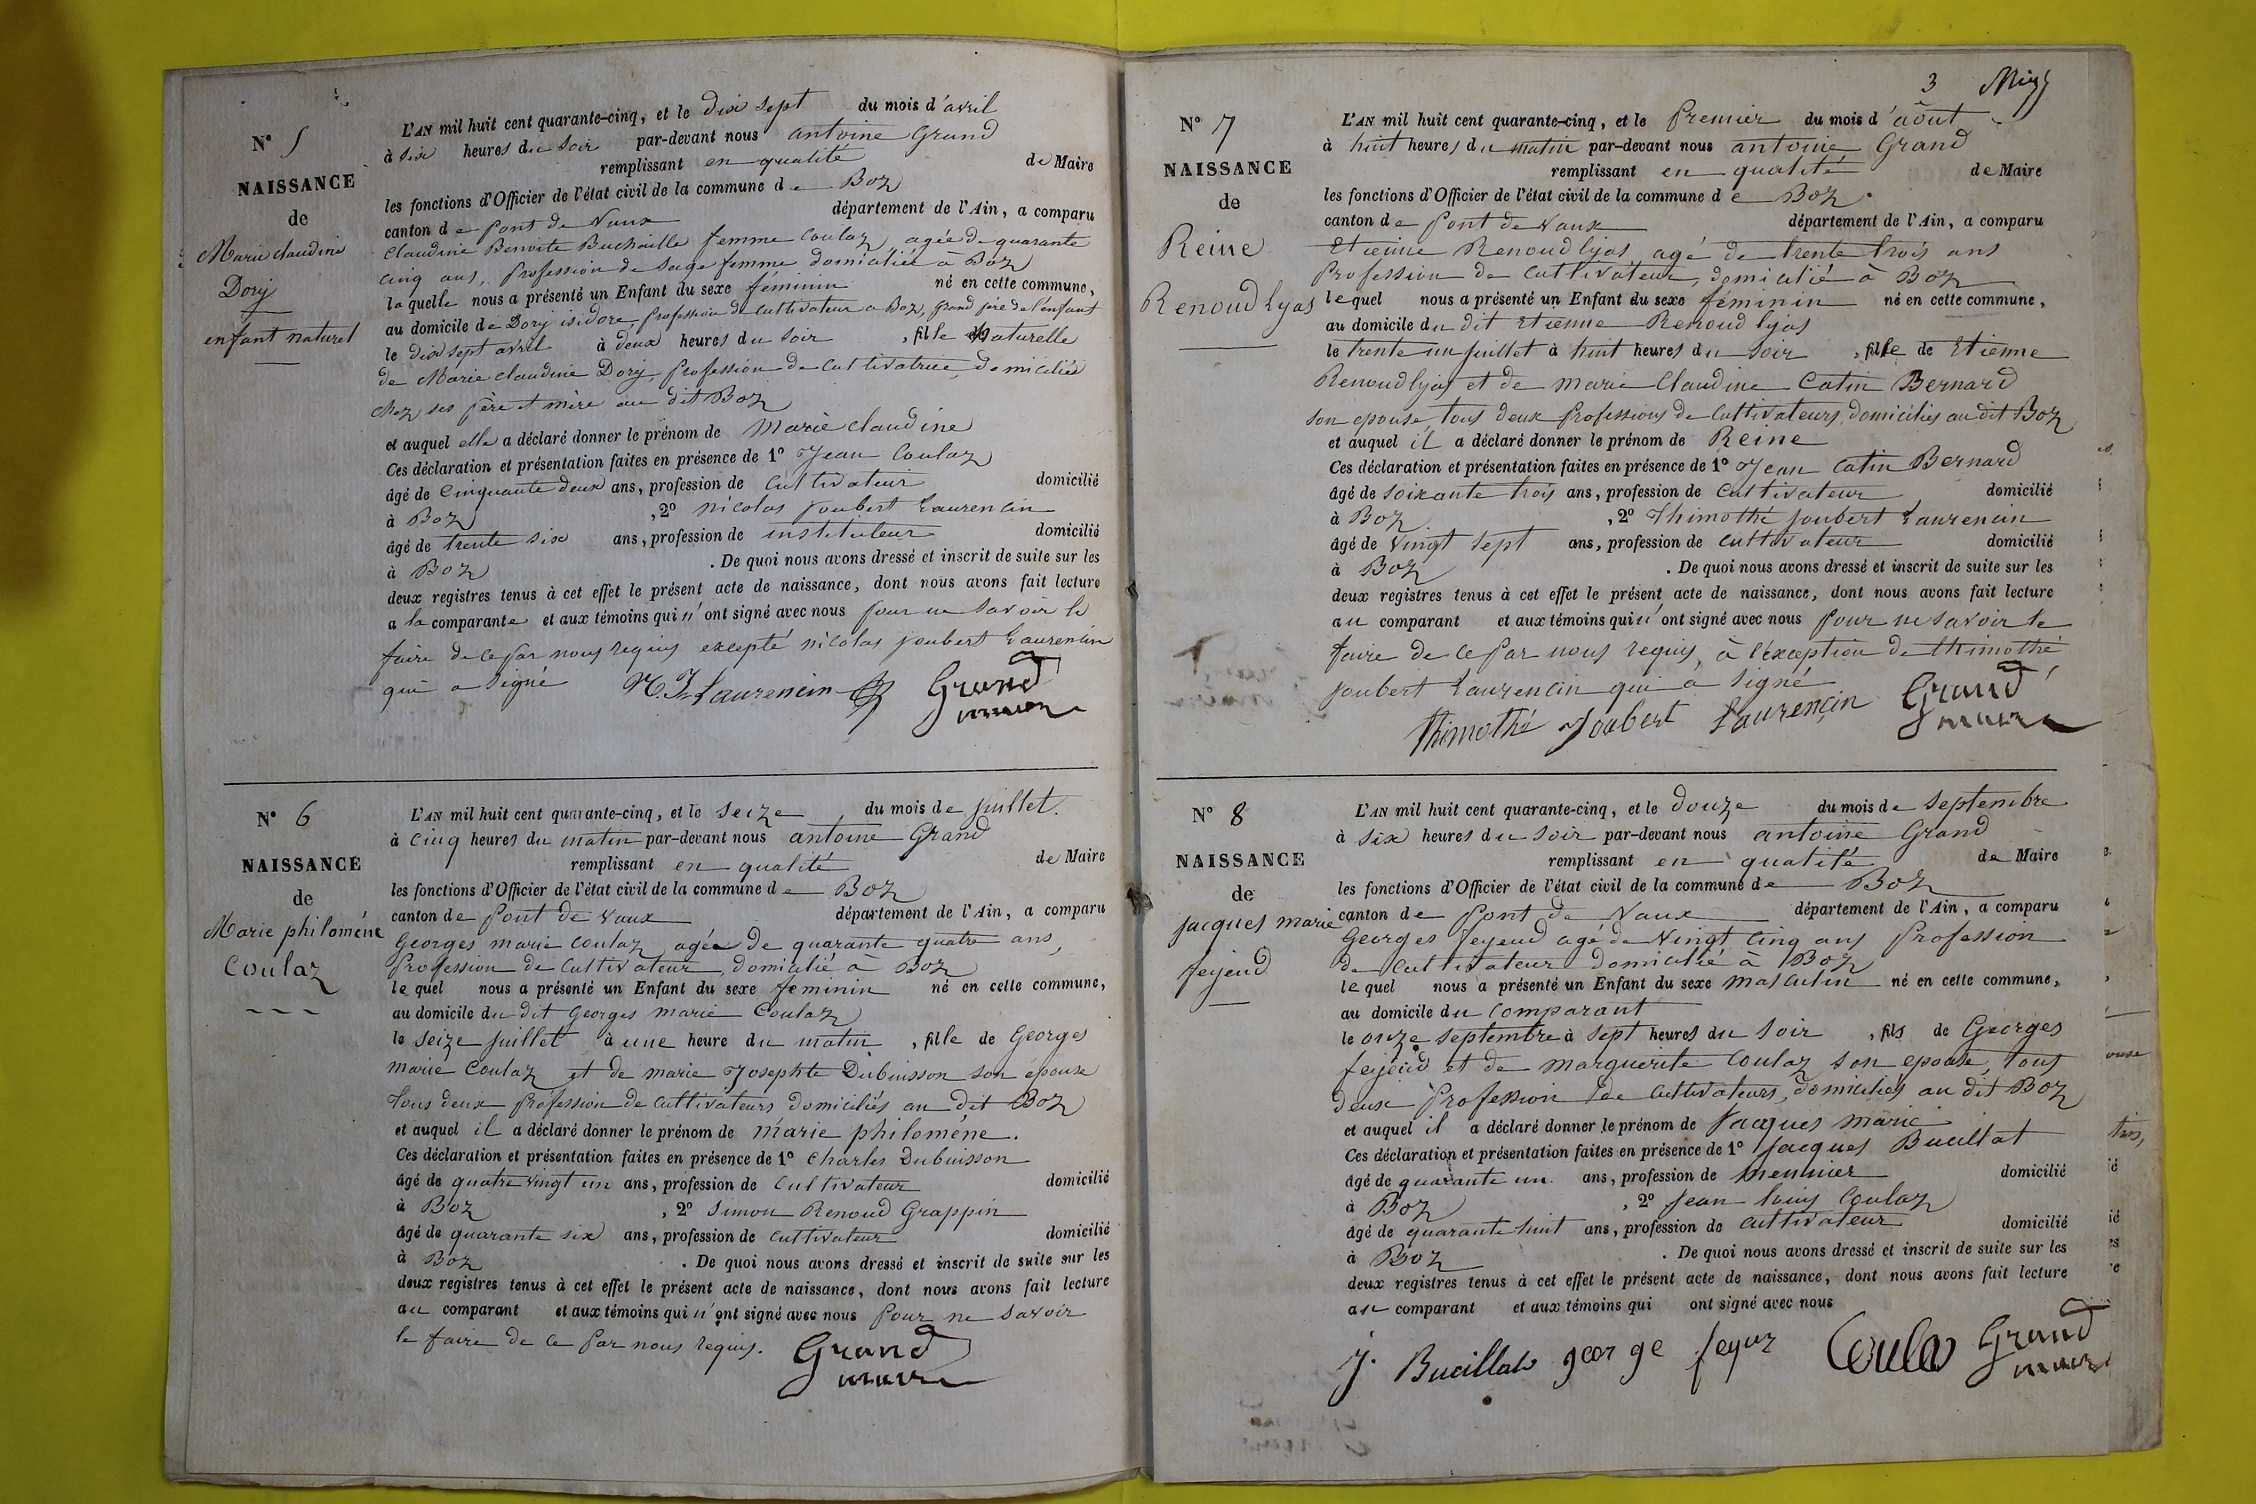 N° 5
NAISSANCE
de
Marie claudine
Dory
enfant naturel
L'AN mil huit cent quarante-cinq, et le dix sept du mois d'avril
à six heures du soir par-devant nous antoine Grand
remplissant en qualité de Maire
les fonctions d'Officier de l'état civil de la commune de Boz
canton de Pont de Vaux département de l'Ain, a comparu
Claudine Benoite Buchaille femme Coulaz, agée de quarante
cinq ans, profession de Sage femme domiciliée à Boz
la quelle nous a présenté un Enfant du sexe féminin né en cette commune,
au domicile de Dory isidore profession de cultivateur a Boz, grand père de l'enfant
le dix sept avril à deux heures du soir, fille naturelle
de Marie claudine Dory, profession de cultivatrice, domiciliée
chez ses père et mère au dit Boz
et auquel elle a déclaré donner le prénom de Marie claudine
Ces déclaration et présentation faites en présence de 1° Jean Coulaz
âgé de cinquante deux ans, profession de cultivateur domicilié
à Boz, 2° nicolas joubert Laurencin
âgé de trente six ans, profession de instituteur domicilié
à Boz. De quoi nous avons dressé et inscrit de suite sur les
deux registres tenus à cet effet le présent acte de naissance, dont nous avons fait lecture
a la comparante et aux témoins qui n'ont signé avec nous pour ne savoir le
faire de ce par nous requis excepté nicolas joubert Laurencin
qui a signé N. J. Laurencin Grand
maire
N° 6
NAISSANCE
de
Marie philoméne
Coulaz
L'AN mil huit cent quarante-cinq, et le seize du mois de juillet.
à cinq heures du matin par-devant nous antoine Grand
remplissant en qualité de Maire
les fonctions d'Officier de l'état civil de la commune de Boz
canton de Pont de Vaux département de l'Ain, a comparu
Georges marie Coulaz, agée de quarante quatre ans,
Profession de Cultivateur, domicilié à Boz
le quel nous a présenté un Enfant du sexe féminin né en cette commune,
au domicile du dit Georges marie Coulaz
le seize juillet à une heure du matin, fille de Georges
marie Coulaz et de marie Josephte Dubuisson son épouse
tous deux profession de cultivateurs domiciliés au dit Boz
et auquel il a déclaré donner le prénom de marie philoméne.
Ces déclaration et présentation faites en présence de 1° Charles Dubuisson
âgé de quatre vingt un ans, profession de Cultivateur domicilié
à Boz, 2° Simon Renoud Grappin
âgé de quarante six ans, profession de cultivateur domicilié
à Boz. De quoi nous avons dressé et inscrit de suite sur les
deux registres tenus à cet effet le présent acte de naissance, dont nous avons fait lecture
au comparant et aux témoins qui n'ont signé avec nous pour ne savoir
le faire de ce par nous requis. Grand
maire
3
N° 7
NAISSANCE
de
Reine
Renoud lyas
L'AN mil huit cent quarante-cinq, et le premier du mois d'août
à huit heures du matin par-devant nous antoine Grand
remplissant en qualité de Maire
les fonctions d'Officier de l'état civil de la commune de Boz
canton de Pont de Vaux département de l'Ain, a comparu
Etienne Renoud lyas, agé de trente trois ans
Profession de Cultivateur, domicilié à Boz
le quel nous a présenté un Enfant du sexe féminin né en cette commune,
au domicile du dit Etienne Renoud lyas
le trente un juillet à huit heures du soir, fille de Etienne
Renoud lyas et de marie Claudine Catin Bernard
son epouse, tous deux professions de Cultivateurs, domiciliés au dit Boz
et auquel il a déclaré donner le prénom de Reine
Ces déclaration et présentation faites en présence de 1° Jean Catin Bernard
âgé de soixante trois ans, profession de Cultivateur, domicilié
à Boz, 2° Thimothé joubert Laurencin
âgé de Vingt sept ans, profession de cultivateur domicilié
à Boz. De quoi nous avons dressé et inscrit de suite sur les
deux registres tenus à cet effet le présent acte de naissance, dont nous avons fait lecture
au comparant et aux témoins qui n'ont signé avec nous pour ne savoir le
faire de ce par nous requis, à l'éxception de thimothé
joubert Laurencin qui a signé
Thimothé Joubert Laurençin Grand
maire
N° 8
NAISSANCE
de
jacques marie
fejeud
L'AN mil huit cent quarante-cinq, et le douze du mois de septembre
à six heures du soir par-devant nous antoine Grand
remplissant en qualité de Maire
les fonctions d'Officier de l'état civil de la commune de Boz
canton de Pont de Vaux département de l'Ain, a comparu
Georges fejeud agé de Vingt cinq ans profession
de cultivateur domicilié à Boz
le quel nous a présenté un Enfant du sexe masculin né en cette commune,
au domicile du comparant
le onze septembre à sept heures du soir, fils de Georges
fejeud et de marguerite Coulaz son epouse, tous
deux Profession de Cultivateurs, domiciliés au dit Boz
et auquel il a déclaré donner le prénom de Jacques marie
Ces déclaration et présentation faites en présence de 1° Jacques Bucillat
âgé de quarante un ans, profession de meunier domicilié
à Boz, 2° Jean louis Coulaz
âgé de quarante huit ans, profession de cultivateur domicilié
à Boz. De quoi nous avons dressé et inscrit de suite sur les
deux registres tenus à cet effet le présent acte de naissance, dont nous avons fait lecture
au comparant et aux témoins qui ont signé avec nous
J. Bucillat george Coula Grand
maire